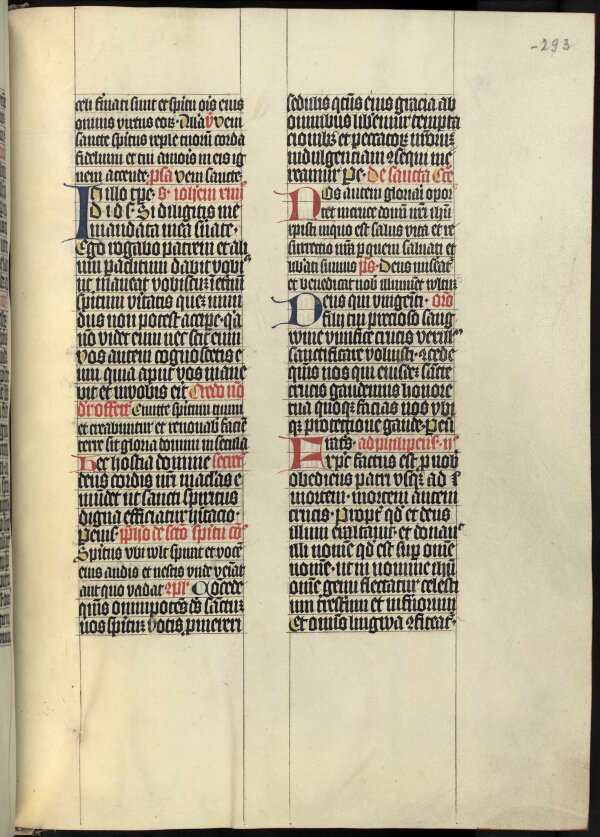 -293
celi firmati sunt et spiritu oris eius
omnis virtus eorum Alla ℣ Veni
sancte spiritus reple tuorum corda
fidelium et tui amoris in eis ig
nem accende psa Veni sancte
In illo tpe s iohem xiiii
Di d s Si diligitis me
mandata mea suate
Ego rogabo patrem et ali
um paclitum dabit vobis
ut maneat vobiscum i etnum
spiritum vitatis quem mun
dus non potest accipe qa
no videt eum nec scit eum
Vos autem cognoscetis e
um quia aput vos mane
bit et in vobis erit Credo no
dr offert Emitte spiritum tuum
et creabuntur et renovab facie
terre sit gloria domini in secula
Hec hostia domine secret
deus cordis nri maclas e
mudet ut sancti spiritus
digna efficiatur hitacio
Spiritus ubi wlt spirat et voce
eius audis et nescis unde veniat
aut quo vadat 9plet Concede
qus omnipotes ds sanctum
nos spiritum votis pmereri
sedulis qtus eius gracia ab
omnibus liberemur tempta
cionibus et peccatorum nrorum
indulgenciam 9sequi me
reamur Pe De sancta Cce
Nos autem gloriari opor
tet in cruce domi nri ihu
xpisti in quo est salus vita et re
surrectio nra p quem salvati et
libati sumus ps Deus miseat
et benedicat nob illuminet wltum
Deus qui unigeniti oro
filii tui precioso sang
wine vivifice crucis vexillum
sanctificare voluisti 9cede
qus eos qui eiusdem sancte
crucis gaudemus honore
tua quoque facias nos ubi
que protectione gaude Peun
Frates ad philipens ii
Xpc factus est p nob
obediens patri usque ad
mortem mortem autem
crucis Propt qd et deus
illum exaltavit et donavit
illi nome qd est sup ome
nome ut in nomine ihu
ome genu flectatur celesti
um trestrium et infnorum
Et omis lingwa 9fiteatr